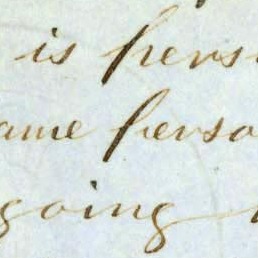 is pers
ame perso
going